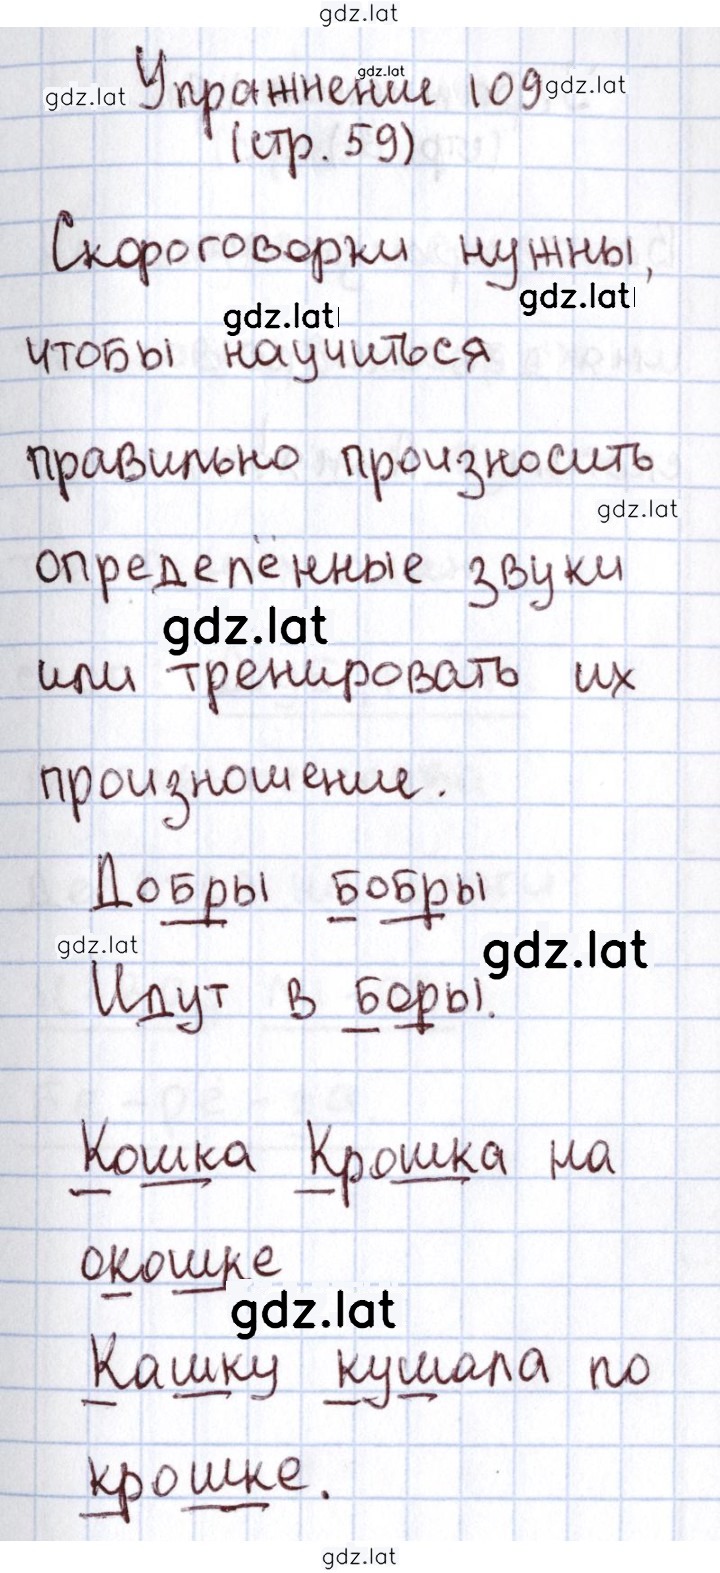 gdz.lat
gdz.lat Упражнение 109 gdz.lat
gdz.lat
(стр. 59)
Скороговорки нужны,
gdz.lat gdz.lat
чтобы научиться
правильно произносить
gdz.lat
определённые звуки
gdz.lat
или тренировать их
произношение.
Добры бобры
gdz.lat gdz.lat
Идут в боры.
Кошка Крошка на
окошке
gdz.lat
Кашку кушала по
крошке.
gdz.lat